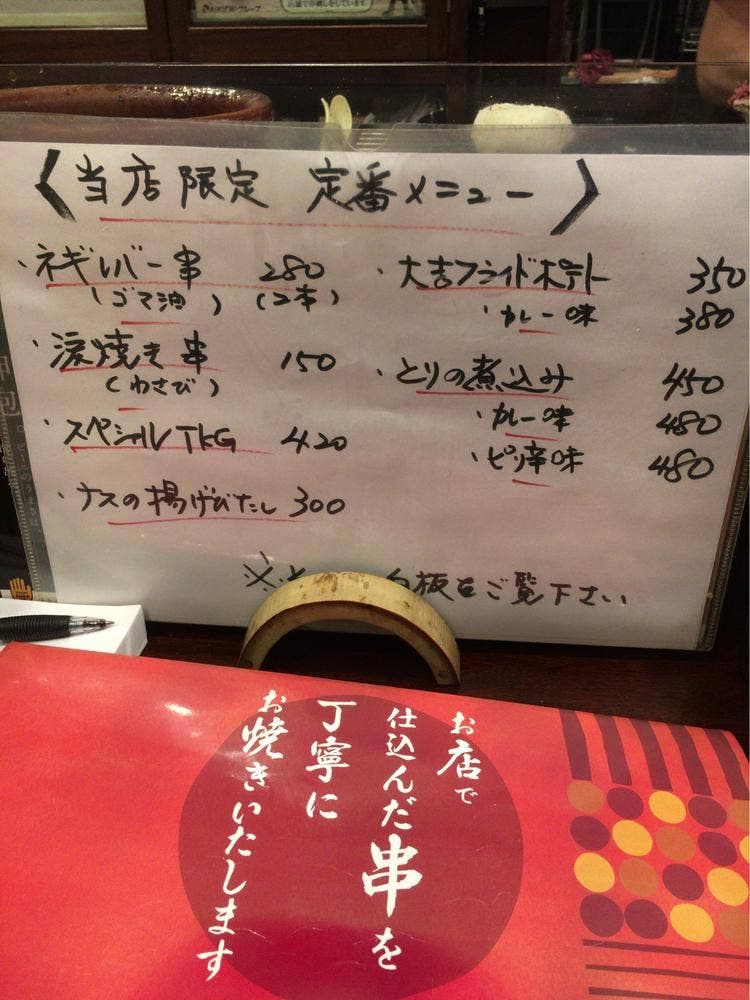 〈当店限定 定番メニュー〉
・ネギレバー串 280
(ゴマ油) (2本)
・涙焼き串 150
(わさび)
・スペシャルTKG 420
・ナスの揚げびたし 300
・大吉フライドポテト 350
・カレー味 380
・とりの煮込み 450
・カレー味 480
・ピリ辛味 480
※ 白板をご覧下さい
お店で
仕込んだ串を
丁寧に
お焼きいたします